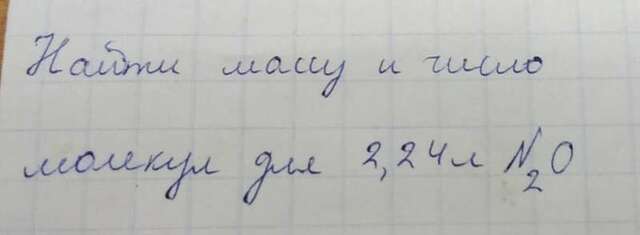 Найти массу и число
молекул для 2,24л N₂O